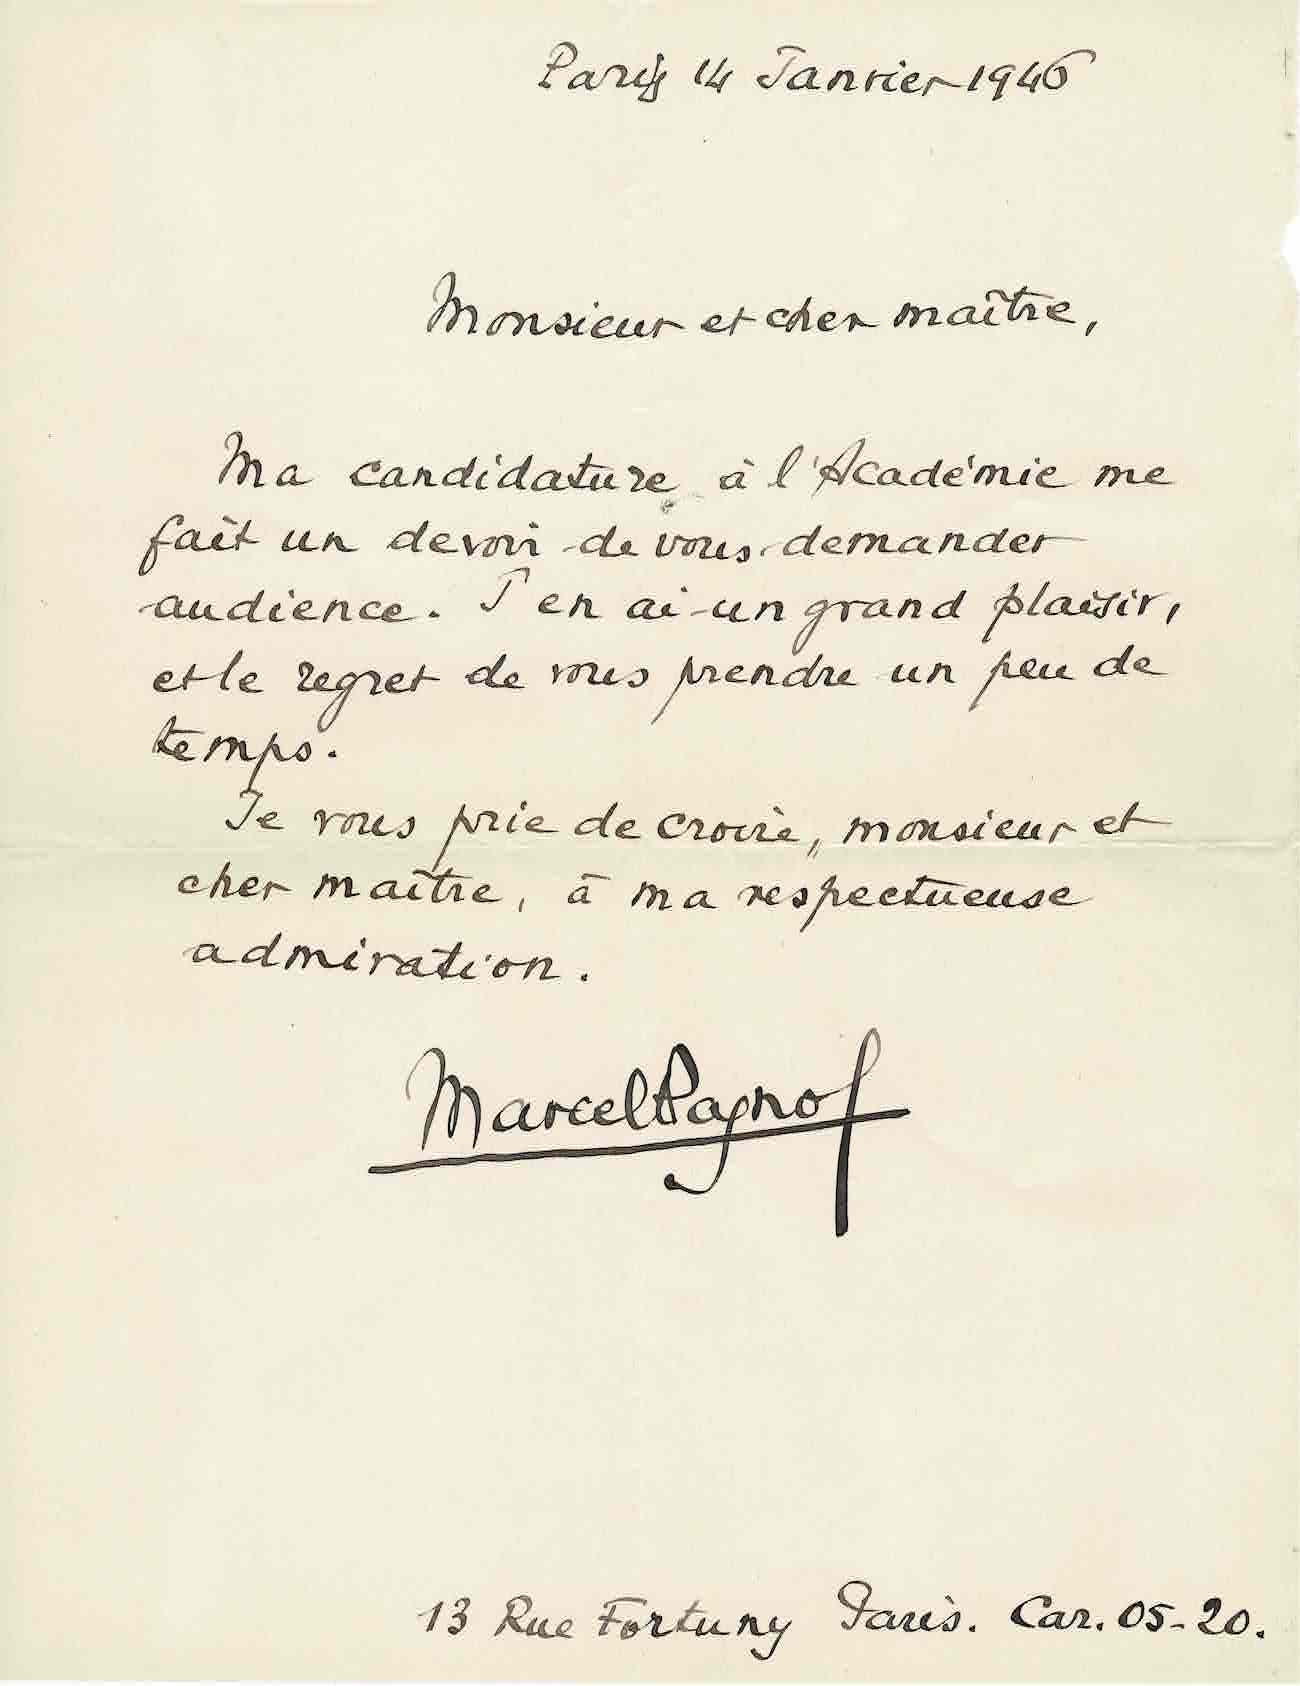 Paris 14 Janvier 1946
Monsieur et cher maître,
Ma candidature à l'Académie me
fait un devoir de vous demander
audience. J'en ai un grand plaisir,
et le regret de vous prendre un peu de
temps.
Je vous prie de croire, monsieur et
cher maître, à ma respectueuse
admiration.
Marcel Pagnol
13 Rue Fortuny Paris. Car. 05-20.